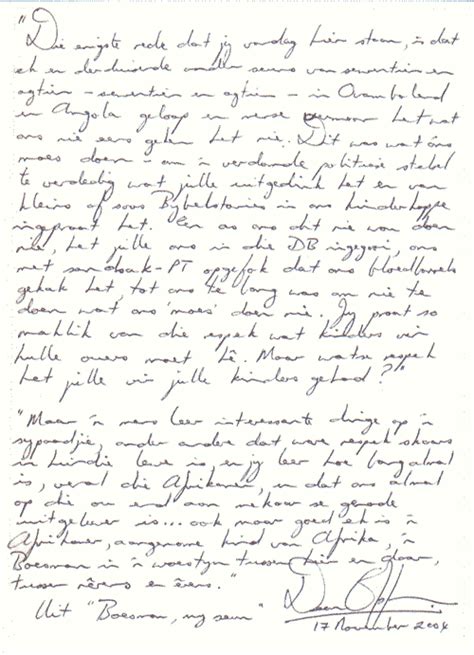 "Die enigste rede dat jy vandag hier staan, is dat
ek en derduisende ander seuns van sewentien en
agtien - sewentien en agtien - in Ovamboland
en Angola geloop en mense vermoor het wat
ons nie eers geken het nie. Dit was wat óns
moes doen - om 'n verdomde politieke stelsel
te verdedig wat julle uitgedink het en van
kleins af soos Bybelstories in ons kinderkoppe
ingepraat het. En as ons dit nie wou doen
nie, het julle ons in die DB ingegooi, ons
met sandsak-PT opgefok dat ons bloedborrels
gekak het, tot ons te bang was om nie te
doen wat ons 'moes' doen nie. Jy praat so
maklik van die respek wat kinders vir
hulle ouers moet hê. Maar watse respek
het julle vir julle kinders gehad?"
"Maar 'n mens leer interessante dinge op 'n
sypaadjie, onder andere dat ware respek skaars
in hierdie lewe is en jy leer hoe bang almal
is, veral die Afrikaner, en dat ons almal
op die ou end aan mekaar se genade
uitgelewer is... ook maar goed ek is 'n
Afrikaner, aangenome kind van Afrika, 'n
Boesman in 'n woestyn tussen hier en daar,
tussen nêrens en êrens."
Uit "Boesman, my seun"
17 November 2004